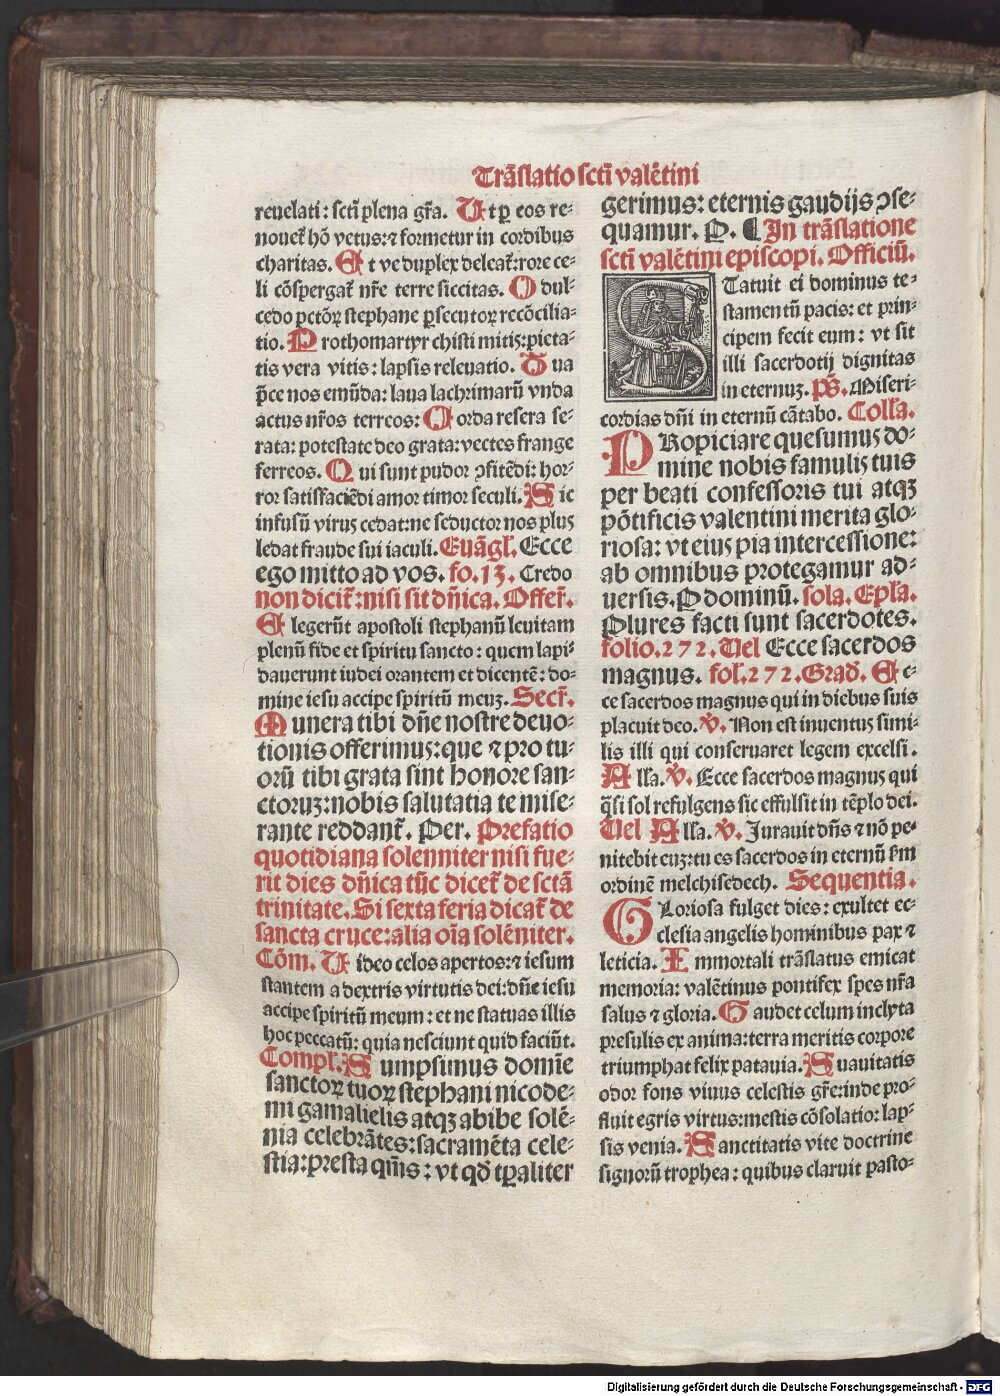 Trãſlatio ſctĩ valẽtini
reuelati: ſctĩ plena gr̃a. Ut ꝑ eos re-
nouet᷑ hõ vetus: ⁊ formetur in cordibus
charitas. Et ve duplex deleat᷑: rore ce-
li cõſpergat᷑ nr̃e terre ſiccitas. O dul-
cedo ꝑctõꝝ ſtephane ꝑſecutoꝝ recõcilia-
tio. Prothomartyr chiſti mitis: pieta-
tis vera vitis: lapſis releuatio. Tua
p̃ce nos emũda: laua lachrimarũ vnda
actus nr̃os terreos: Corda reſera ſe-
rata: poteſtate deo grata: vectes frange
ferreos. Qui ſunt pudor ꝯfitẽdi: hor-
ror ſatiſfaciẽdi amor timor ſeculi. Sic
infuſũ virus cedat: ne ſeductor nos plus
ledat fraude ſui iaculi. Euãgl̃. Ecce
ego mitto ad vos. fo. 13. Credo
non dicit᷑: niſi ſit dñica. Offer̃.
Elegerũt apoſtoli ſtephanũ leuitam
plenũ fide et ſpiritu ſancto: quem lapi-
dauerunt iudei orantem et dicentẽ: do-
mine ieſu accipe ſpiritũ meuꝫ. Secr̃.
Munera tibi dñe noſtre deuo-
tionis offerimus: que ⁊ pro tu-
orũ tibi grata ſint honore ſan-
ctoruꝫ: nobis ſalutatia te miſe-
rante reddant᷑. Per. Prefatio
quotidiana ſolenniter niſi fue-
rit dies dñica tũc dicet᷑ de ſctã
trinitate. Si ſexta feria dicat᷑ de
ſancta cruce: alia oĩa ſolẽniter.
Cõm. Video celos apertos: ⁊ ieſum
ſtantem a dextris virtutis dei: dñe ieſu
accipe ſpiritũ meum: et ne ſtatuas illis
hoc peccatũ: quia neſciunt quid faciũt.
Compl̃. Sumpſimus domĩe
ſanctoꝝ tuoꝝ ſtephani nicode-
mi gamalielis atqꝫ abibe ſolẽ-
nia celebrãtes: ſacramẽta cele-
ſtia: preſta qm̃s: vt qd̃ tꝑaliter
gerimus: eternis gaudijs ꝯſe-
quamur. P. ¶ In trãſlatione
ſctĩ valẽtini epiſcopi. Officiũ.
STatuit ei dominus te-
ſtamentũ pacis: et prin-
cipem fecit eum: vt ſit
illi ſacerdotij dignitas
in eternuꝫ. p̃s. Miſeri-
cordias dñi in eternũ cãtabo. Coll̃a.
PRopiciare queſumus do-
mine nobis famulis tuis
per beati confeſſoris tui atqꝫ
põtificis valentini merita glo-
rioſa: vt eius pia interceſſione:
ab omnibus protegamur ad-
uerſis. P dominũ. ſola. Epl̃a.
Plures facti ſunt ſacerdotes.
folio. 272. Uel Ecce ſacerdos
magnus. fol. 272. Grad̃. Ec-
ce ſacerdos magnus qui in diebus ſuis
placuit deo. ꝟ. Non eſt inuentus ſimi-
lis illi qui conſeruaret legem excelſi.
All̃a. ꝟ. Ecce ſacerdos magnus qui
q̃ſi ſol refulgens ſic effulſit in tẽplo dei.
Uel All̃a. ꝟ. Jurauit dñs ⁊ nõ pe-
nitebit euꝫ: tu es ſacerdos in eternũ ẜm
ordinẽ melchiſedech. Sequentia.
GLorioſa fulget dies: exultet ec-
cleſia angelis hominibus pax ⁊
leticia. Immortali trãſlatus emicat
memoria: valẽtinus pontifex ſpes nr̃a
ſalus ⁊ gloria. Gaudet celum inclyta
preſulis ex anima: terra meritis corpore
triumphat felix patauia. Suauitatis
odor fons viuus celeſtis gr̃e: inde pro-
fluit egris virtus: meſtis cõſolatio: lap-
ſis venia. Sanctitatis vite doctrine
ſignorũ trophea: quibus claruit paſto-
Digitalisierung gefördert durch die Deutsche Forschungsgemeinschaft - DFG